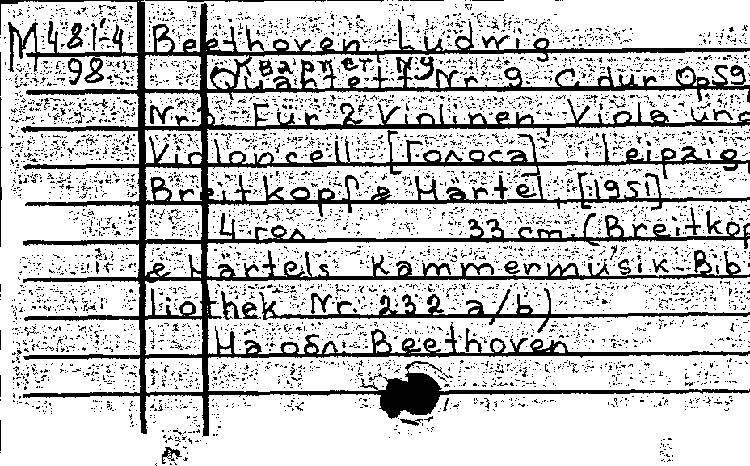 М 481-4 Beethoven Ludwig
98 Квартет №9
Quartett Nr 9 C dur Op 59,
Nr 3 Für 2 Violinen, Viola und
Violoncell [Голоса] Leipzig,
Breitkopf & Härtel, [1951]
4 гол 33 cm. (Breitkop
& Härtels Kammermusik-Bib
liothek Nr. 232 a/b)
На обл. Beethoven